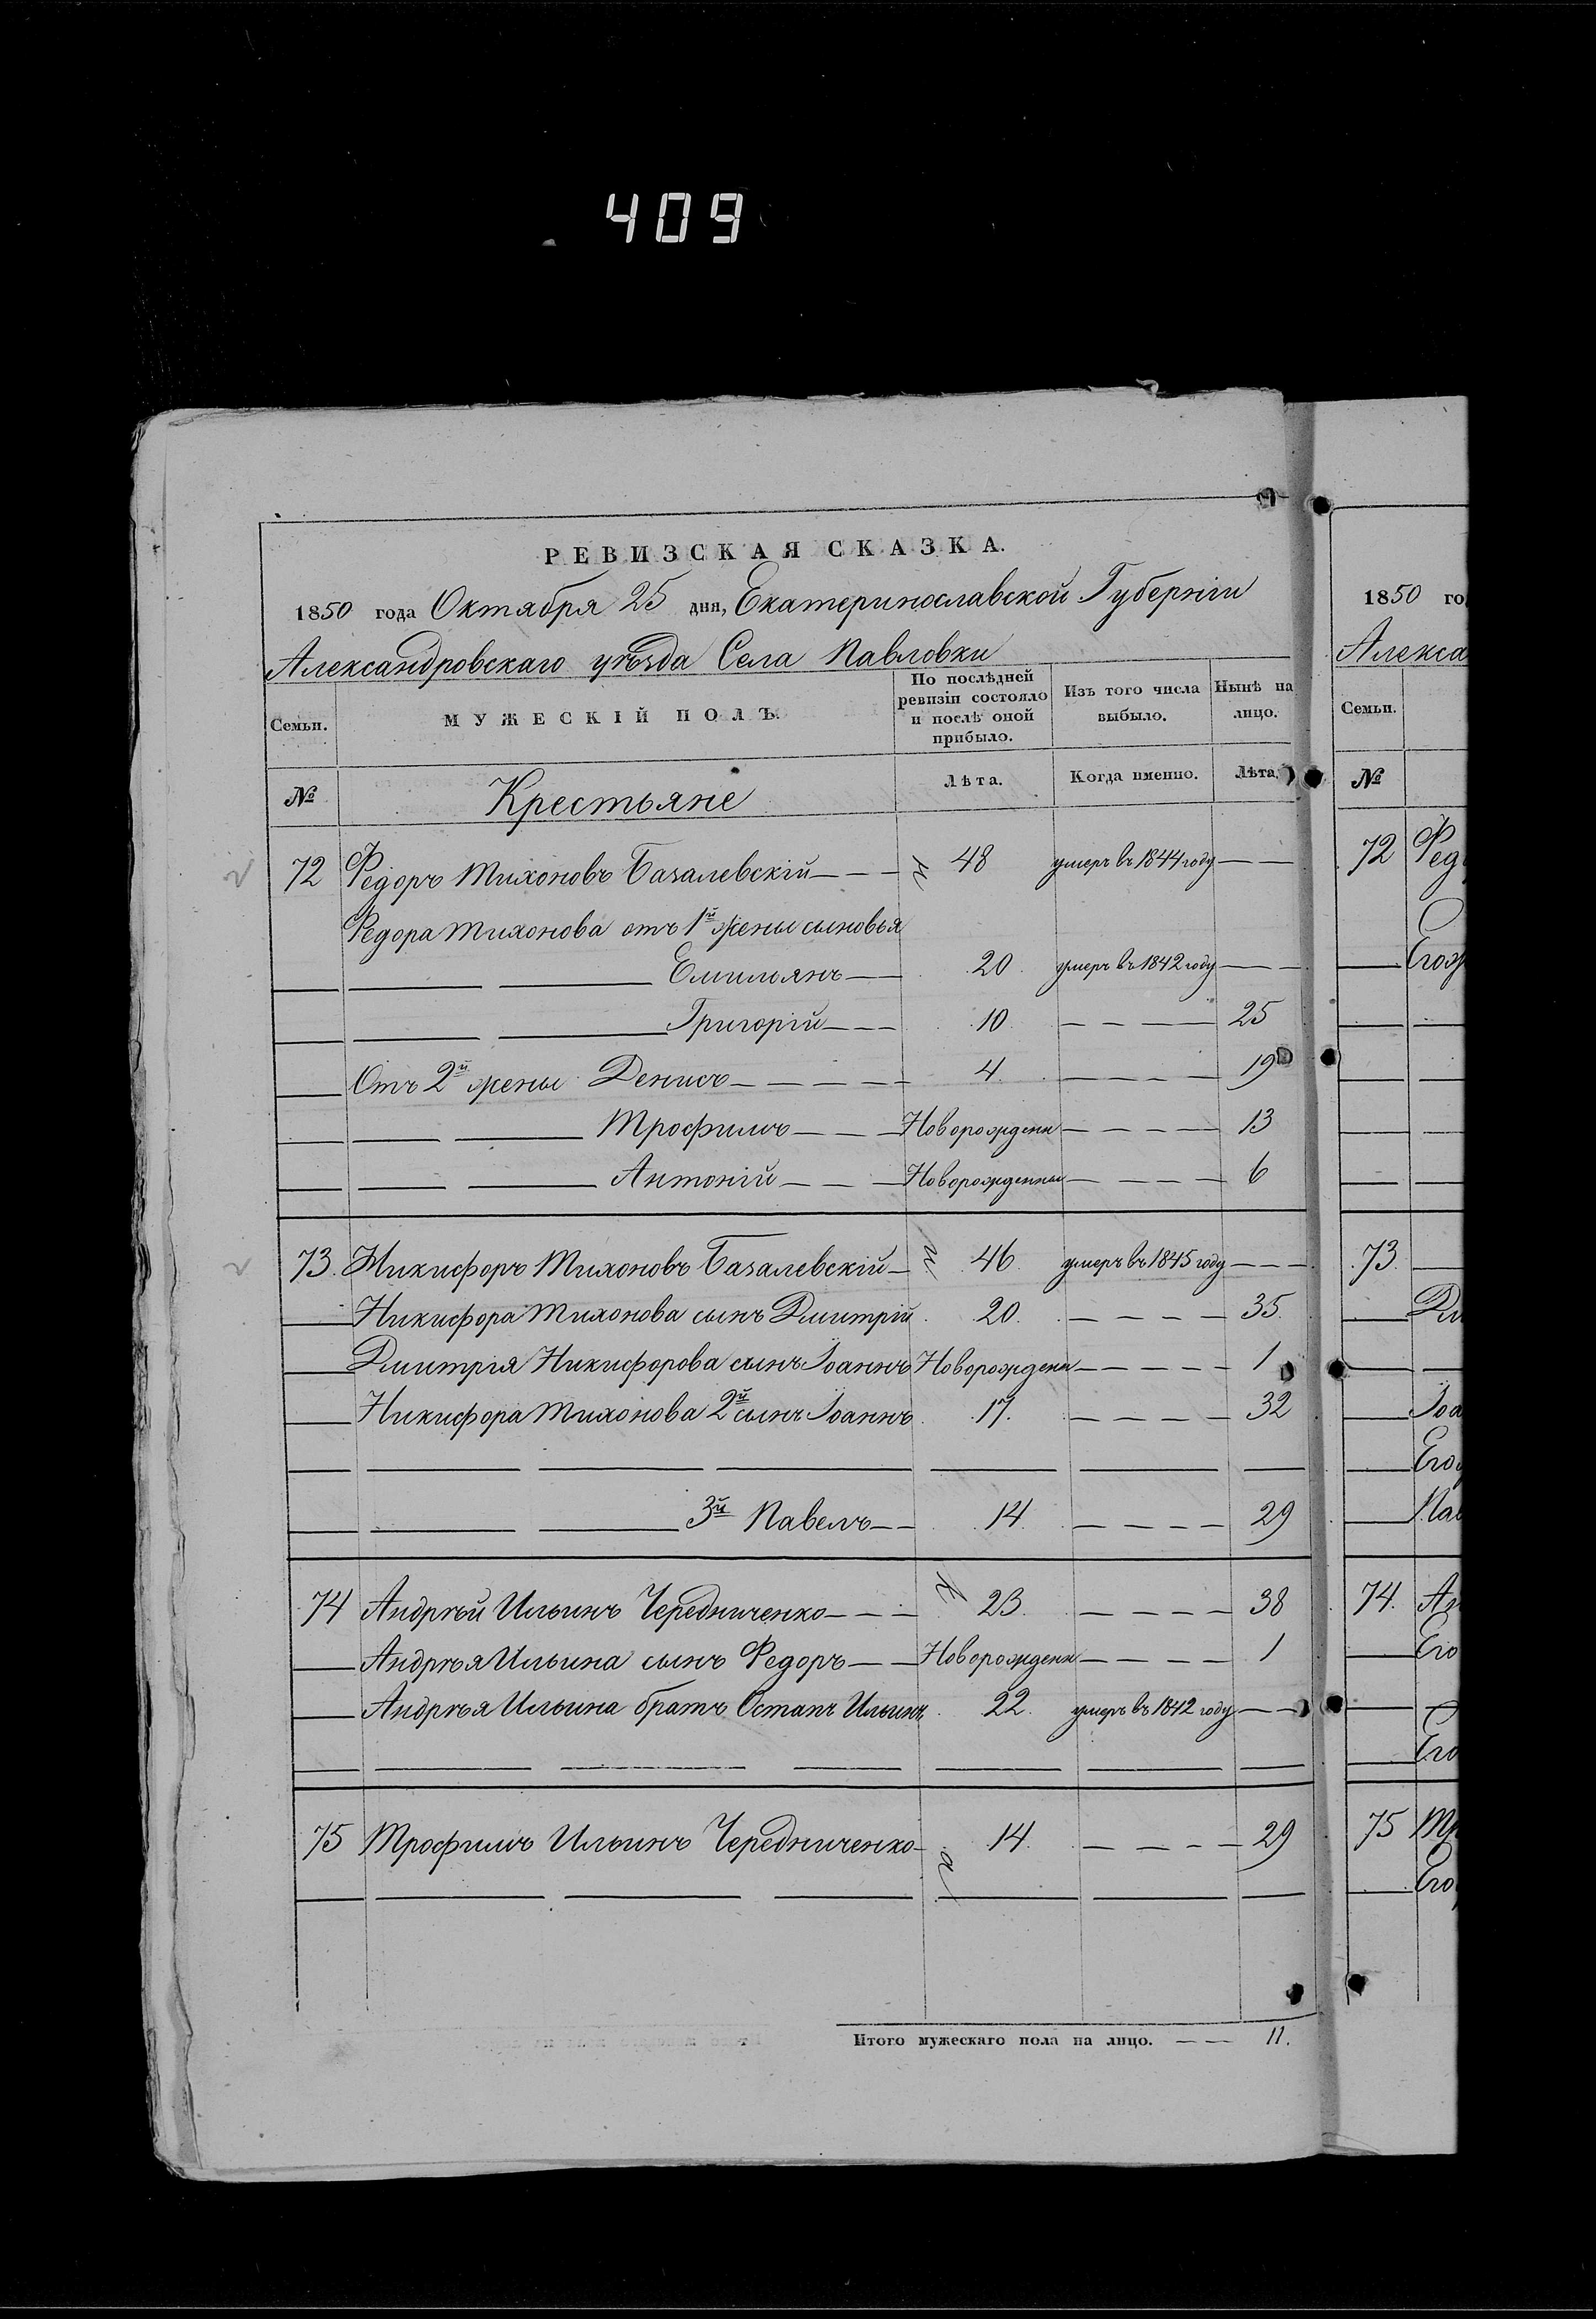 409
РЕВИЗСКАЯ СКАЗКА.
1850 года Октября 25 дня, Екатеринославской Губерніи
Александровскаго уѣзда Села Павловки
Семьи. МУЖЕСКІЙ ПОЛЪ. По послѣдней ревизіи состояло и послѣ оной прибыло. Изъ того числа выбыло. Нынѣ на лицо.
№ Крестьяне Лѣта. Когда именно. Лѣта.
72 Федоръ Тихоновъ Базалевскій 48 умеръ въ 1844 году
Федора Тихонова отъ 1й жены сыновья
Емильянъ 20 умеръ въ 1842 году
Григорій 10 25
Отъ 2й жены Денисъ 4 19
Трофимъ Новорожденн 13
Антоній Новорожденны 6
73. Никифоръ Тихоновъ Базалевскій 46 умеръ въ 1845 году
Никифора Тихонова сынъ Дмитрій 20 35
Дмитрія Никифорова сынъ Іоаннъ Новорожденн 1
Никифора Тихонова 2й сынъ Іоаннъ 17 32
3й Павелъ 14 29
74 Андрѣй Ильинъ Чередниченко 23 38
Андрѣя Ильина сынъ Федоръ Новорожденн 1
Андрѣя Ильина братъ Остапъ Ильинъ 22 умеръ въ 1842 году
75 Трофимъ Ильинъ Чередниченко 14 29
Итого мужескаго пола на лицо. 11.
1850 го
Алекса
Семьи.
№
72 Фед
Егож
73
Дм
Іоа
Егож
Пав
74. Ан
Его
Его
75 Тр
Его